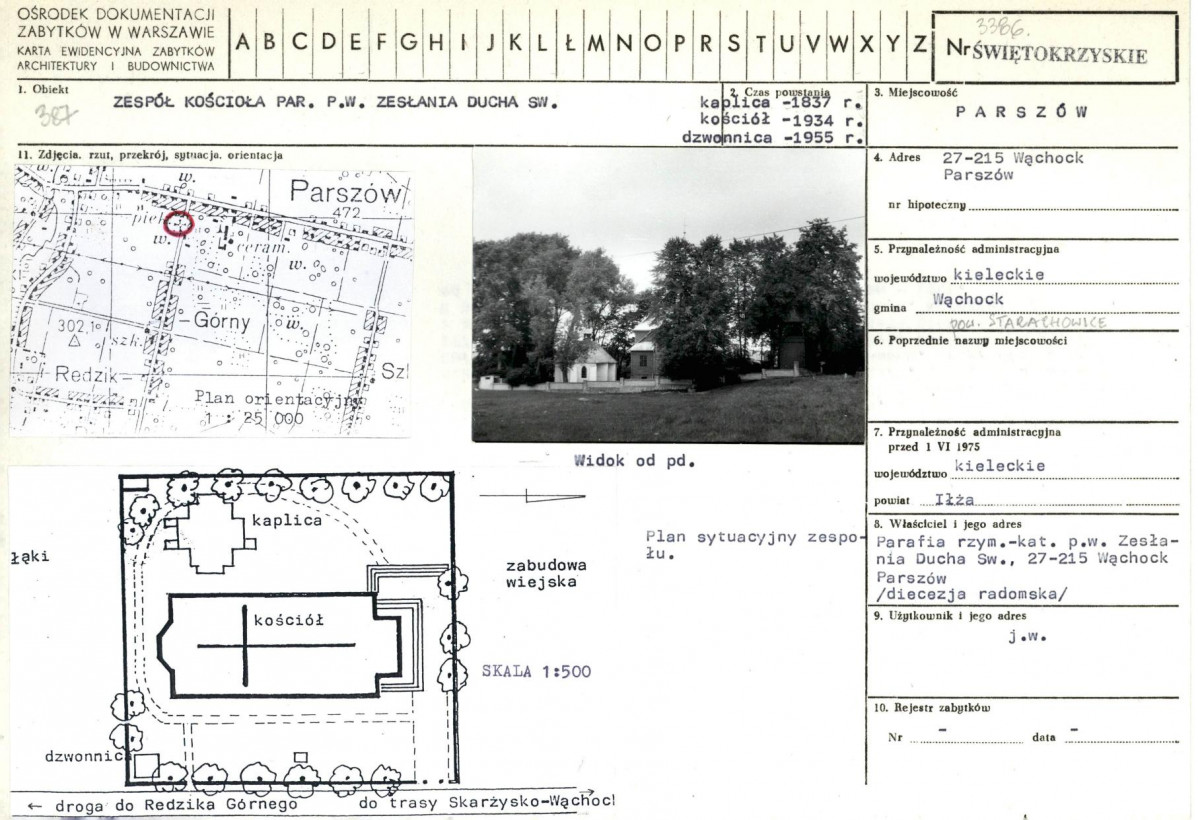 OŚRODEK DOKUMENTACJI
ZABYTKÓW W WARSZAWIE
KARTA EWIDENCYJNA ZABYTKÓW
ARCHITEKTURY I BUDOWNICTWA
A B C D E F G H I J K L Ł M N O P R S T U V W X Y Z
3386.
Nr ŚWIĘTOKRZYSKIE
1. Obiekt
387
ZESPÓŁ KOŚCIOŁA PAR. P.W. ZESŁANIA DUCHA SW.
2. Czas powstania
kaplica -1837 r.
kościół -1934 r.
dzwonnica -1955 r.
3. Miejscowość
PARSZÓW
11. Zdjęcia, rzut, przekrój, sytuacja, orientacja
w.
w.
Parszów
472
piek.
w.
ceram.
w.
302,1
szk.
Górny
w.
Redzik
Sz
Plan orientacyjny
1 : 25 000
Widok od pd.
4. Adres 27-215 Wąchock
Parszów
nr hipoteczny
5. Przynależność administracyjna
województwo kieleckie
gmina Wąchock
pow. STARACHOWICE
6. Poprzednie nazwy miejscowości
7. Przynależność administracyjna
przed 1 VI 1975
województwo kieleckie
powiat Iłża
8. Właściciel i jego adres
Parafia rzym.-kat. p.w. Zesła-
nia Ducha Sw., 27-215 Wąchock
Parszów
/diecezja radomska/
9. Użytkownik i jego adres
j.w.
10. Rejestr zabytków
Nr - data -
kaplica
łąki
zabudowa
wiejska
Plan sytuacyjny zespo-
łu.
kościół
SKALA 1:500
dzwonnica
← droga do Redzika Górnego do trasy Skarżysko-Wąchoc